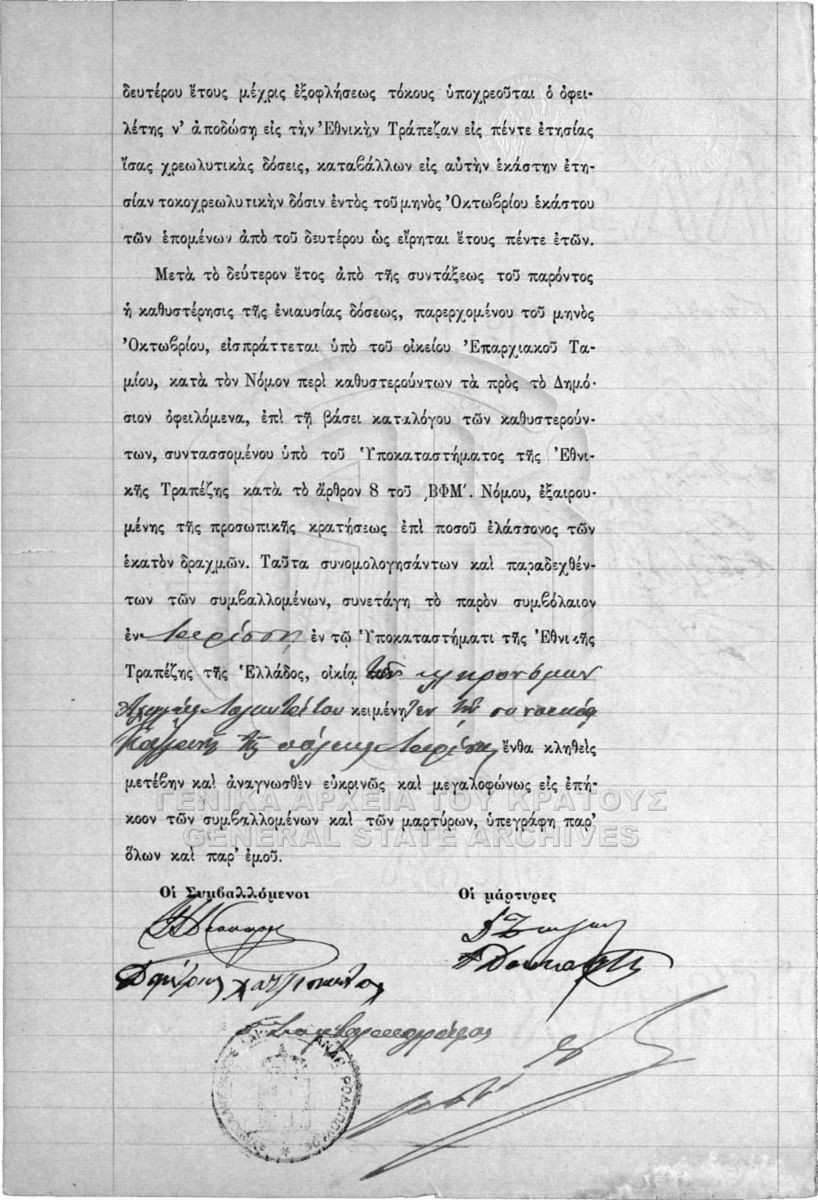 δευτέρου ἔτους μέχρις ἐξοφλήσεως τόκους ὑποχρεοῦται ὁ ὀφει-
λέτης ν’ ἀποδώσῃ εἰς τὴν Ἐθνικὴν Τράπεζαν εἰς πέντε ἐτησίας
ἴσας χρεωλυτικὰς δόσεις, καταβάλλων εἰς αὐτὴν ἑκάστην ἐτη-
σίαν τοκοχρεωλυτικὴν δόσιν ἐντὸς τοῦ μηνὸς Ὀκτωβρίου ἑκάστου
τῶν ἑπομένων ἀπὸ τοῦ δευτέρου ὡς εἴρηται ἔτους πέντε ἐτῶν.
Μετὰ τὸ δεύτερον ἔτος ἀπὸ τῆς συντάξεως τοῦ παρόντος
ἡ καθυστέρησις τῆς ἐνιαυσίας δόσεως, παρερχομένου τοῦ μηνὸς
Ὀκτωβρίου, εἰσπράττεται ὑπὸ τοῦ οἰκείου Ἐπαρχιακοῦ Τα-
μίου, κατὰ τὸν Νόμον περὶ καθυστερούντων τὰ πρὸς τὸ Δημό-
σιον ὀφειλόμενα, ἐπὶ τῇ βάσει καταλόγου τῶν καθυστερούν-
των, συντασσομένου ὑπὸ τοῦ Ὑποκαταστήματος τῆς Ἐθνι-
κῆς Τραπέζης κατὰ τὸ ἄρθρον 8 τοῦ ͵ΒΦΜ΄. Νόμου, ἐξαιρου-
μένης τῆς προσωπικῆς κρατήσεως ἐπὶ ποσοῦ ἐλάσσονος τῶν
ἑκατὸν δραχμῶν. Ταῦτα συνομολογησάντων καὶ παραδεχθέν-
των τῶν συμβαλλομένων, συνετάγη τὸ παρὸν συμβόλαιον
ἐν Λαρίσσῃ ἐν τῷ Ὑποκαταστήματι τῆς Ἐθνικῆς
Τραπέζης τῆς Ἑλλάδος, οἰκίᾳ τῶν κληρονόμων
κειμένῃ ἐν τῇ συνοικίᾳ
τῆς πόλεως Λαρίσσης ἔνθα κληθεὶς
μετέβην καὶ ἀναγνωσθὲν εὐκρινῶς καὶ μεγαλοφώνως εἰς ἐπή-
κοον τῶν συμβαλλομένων καὶ τῶν μαρτύρων, ὑπεγράφη παρ’
ὅλων καὶ παρ’ ἐμοῦ.
ΓΕΝΙΚΑ ΑΡΧΕΙΑ ΤΟΥ ΚΡΑΤΟΥΣ
GENERAL STATE ARCHIVES
Οἱ Συμβαλλόμενοι Οἱ μάρτυρες